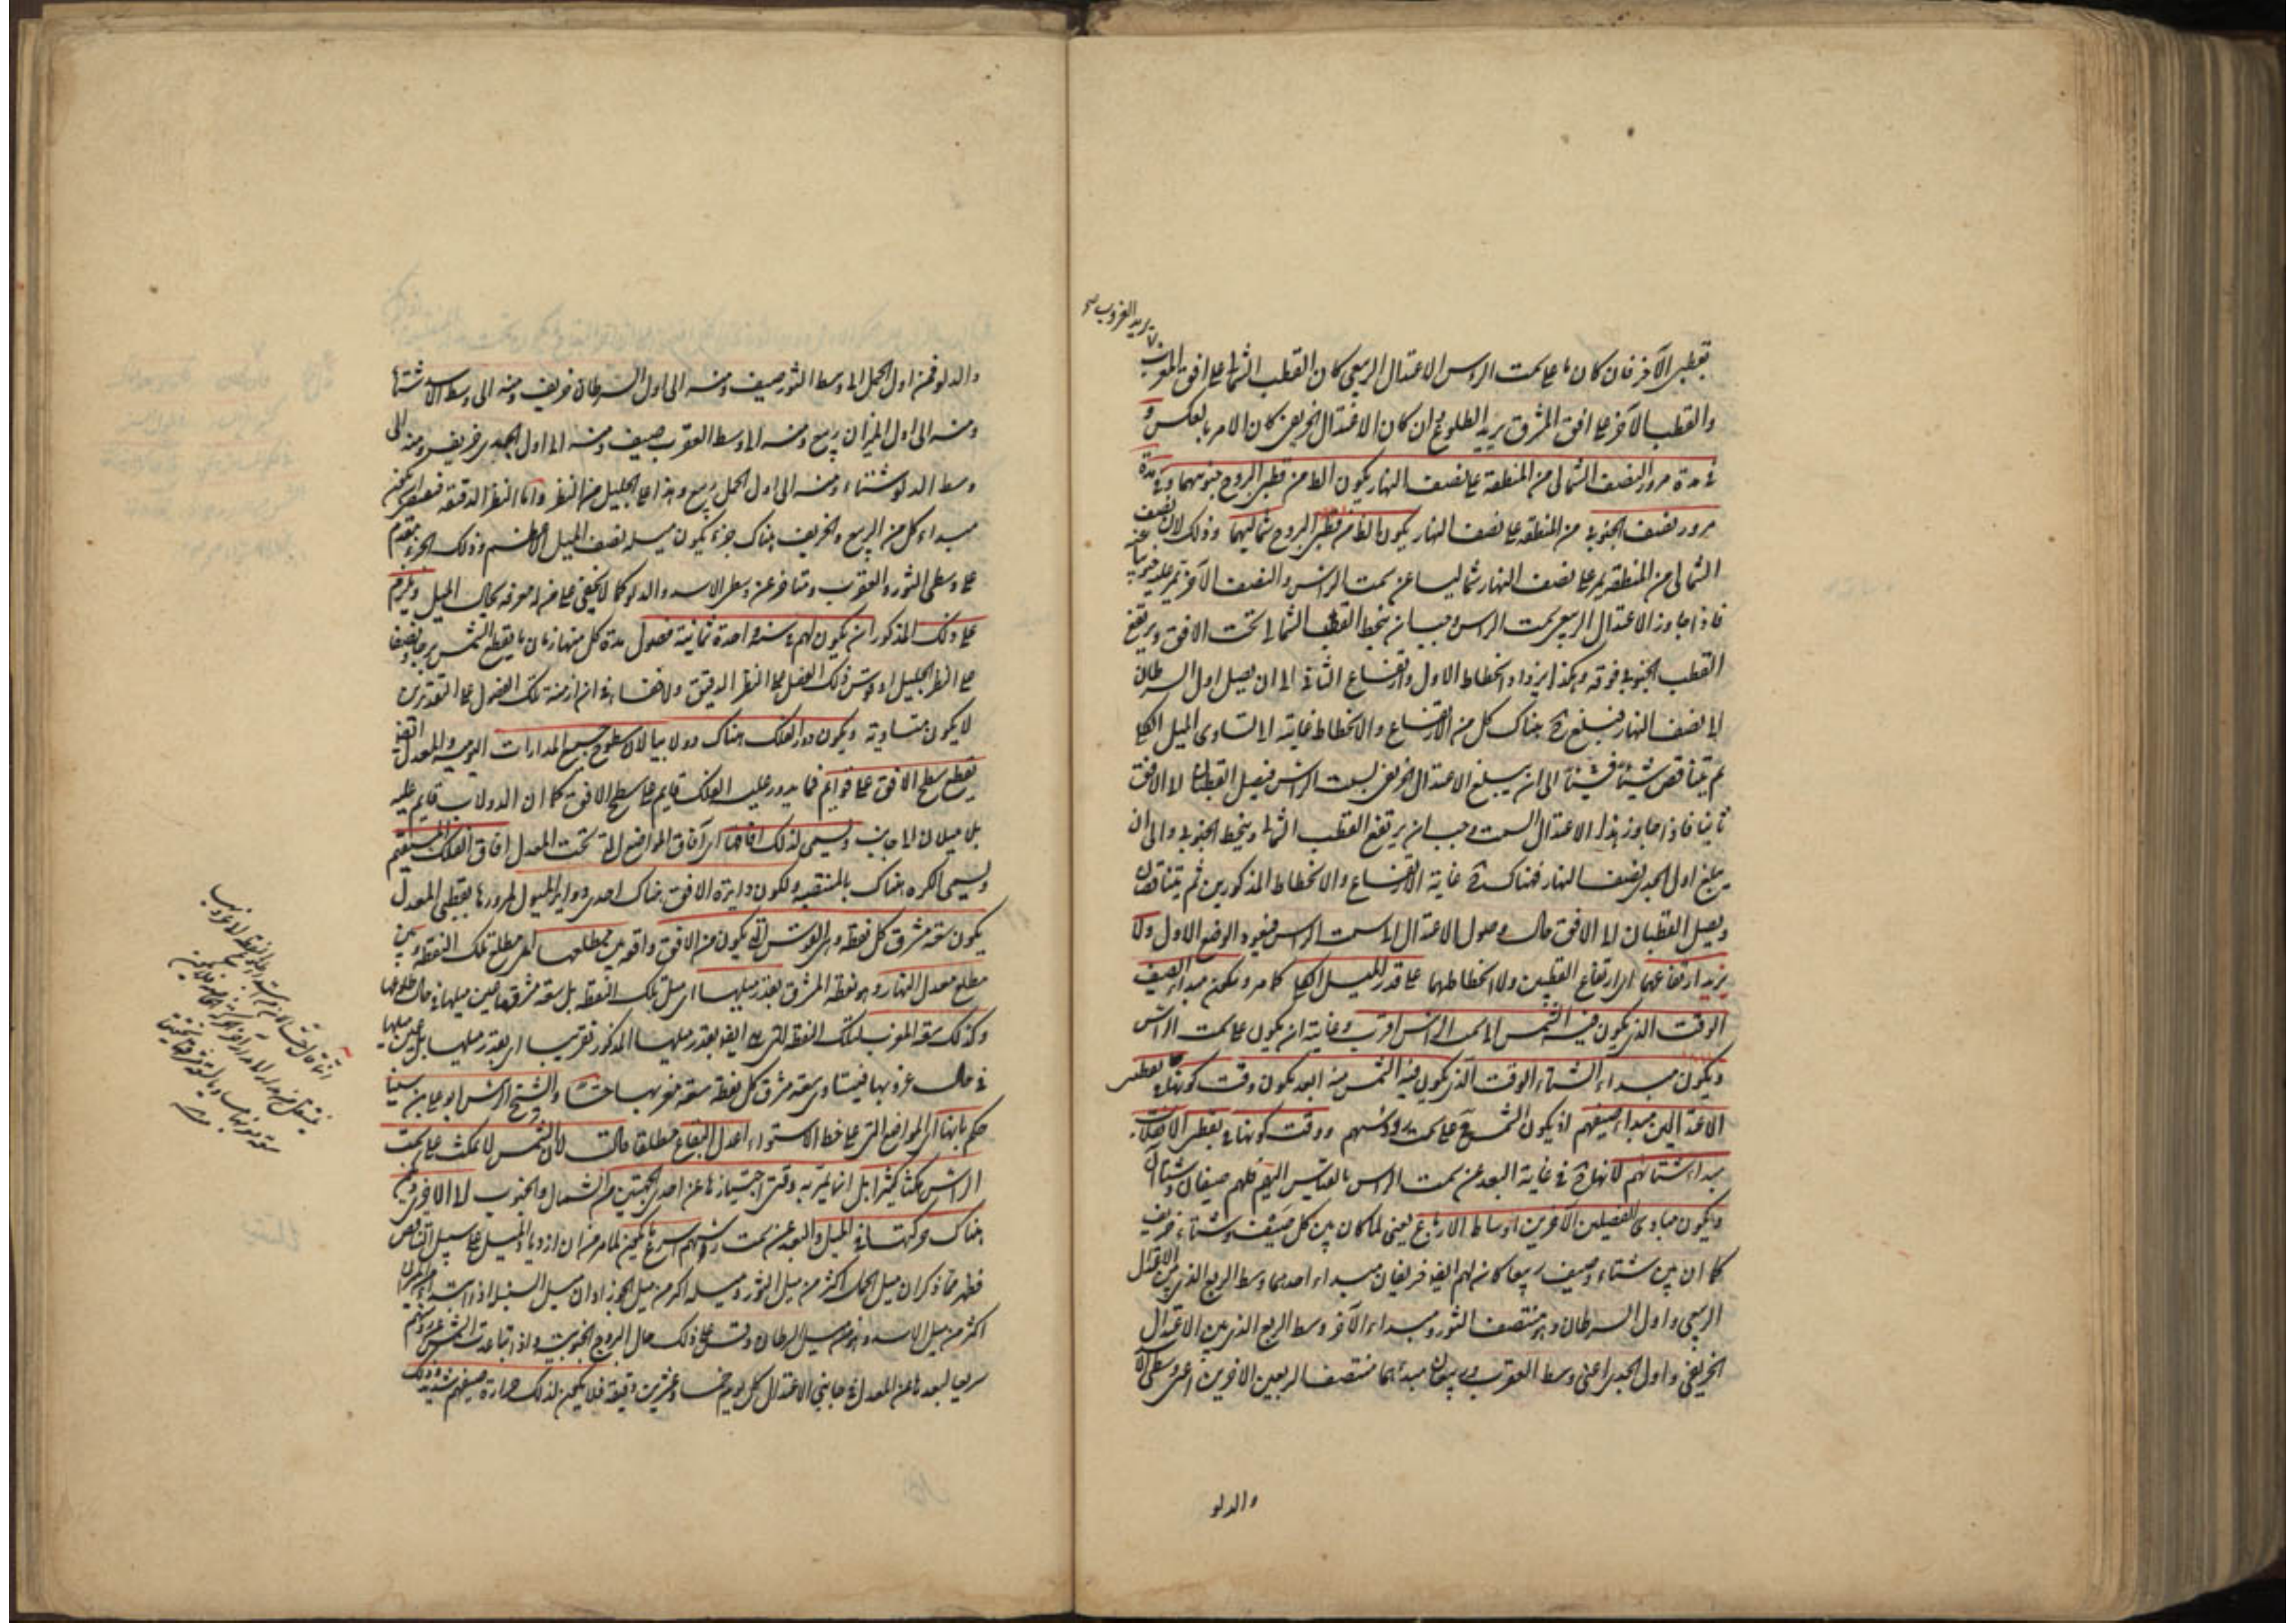 تريد الغروب صح
بقطبى الآخر فان كان ما على سمت الروس الاعتدال الربيعى كان القطب الشمالى على افق المغرب
والقطب الآخر على افق المشرق يريد الطلوع وان كان الاعتدال الخريفى كان الامر بالعكس و
فى مدة مرور النصف الشمالى من المنطقة على نصف النهار يكون الظاهر من قطبى البروج جنوبيهما وفى مدة
مرور نصف الجنوبى من المنطقة على نصف النهار يكون الظاهر من قطبى البروج شماليهما وذلك لان نصف
الشمالى من المنطقة يمر على نصف النهار شماليا عن سمت الراس والنصف الآخر يمر عليه جنوبيا عنه
فاذا جاوز الاعتدال الربيعى سمت الراس وجب ان ينحط القطب الشمالى تحت الافق ويرتفع
القطب الجنوبى فوقه وهكذا يزداد انحطاط الاول وارتفاع الثانى الى ان يصل اول السرطان
الى نصف النهار فيبلغ ح هناك كل من الارتفاع والانحطاط غايته المساوى الميل الكلى
ثم يتناقص شيئا فشيئا الى ان يبلغ الاعتدال الخريفى سمت الراس فيصل القطبان الى الافق
ثانيا فاذا جاوز هذا الاعتدال السمت وجب ان يرتفع القطب الشمالى وينحط الجنوبى والى ان
يبلغ اول الجدى نصف النهار فهناك ح غاية الارتفاع والانحطاط المذكورين ثم يتناقصان
ويصل القطبان الى الافق حال وصول الاعتدال الى سمت الراس فيعود الوضع الاول ولا
يزيد ارتفاعهما اى ارتفاع القطبين ولا انحطاطهما على قدر الميل الكلى كما مر ويكون مبداء الصيف
الوقت الذى يكون فيه الشمس الى سمت الراس اقرب وغايته ان يكون على سمت الراس
ويكون مبداء الشتاء الوقت الذى يكون فيه الشمس منه ابعد يكون وقت كونها فى نقطتى
الاعتدالين مبداء صيفهم اذ يكون الشمس ح على سمت رؤسهم ووقت كونها فى نقطتى الانقلابين
مبداء شتائهم لانها ح فى غاية البعد عن سمت الراس بالقياس اليهم فلهم صيفان وشتاآن
ويكون مبادى الفصلين الآخرين اوساط الارباع يعنى لما كان بين كل صيف وشتاء خريف
كما ان بين شتاء وصيف ربيعا كان لهم ايضا خريفان مبداء احدهما وسط الربع الذى بين الاعتدال
الربيعى واول السرطان وهو منتصف الثور ومبداء الآخر وسط الربع الذى بين الاعتدال
الخريفى واول الجدى اعنى وسط العقرب وربيعان مبدئهما منتصف الربعين الاخرين اعنى وسطى الاسد
والدلو
والدلو فمن اول الحمل الى وسط الثور صيف ومنه الى اول السرطان خريف ومنه الى وسط الاسد شتاء
ومنه الى اول الميزان ربيع ومنه الى وسط العقرب صيف ومنه الى اول الجدى خريف ومنه الى
وسط الدلو شتاء ومنه الى اول الحمل ربيع وهذا على الجليل من النظر واما النظر الدقيق فيقتضى ان يكون
مبداء كل من الربيع والخريف هناك جزء يكون ميله نصف الميل الاعظم وذلك الجزء متقدم
على وسطى الثور والعقرب ومتاخر عن وسطى الاسد والدلو كما لا يخفى على من له معرفة بحال الميل ويلزم
على ذلك المذكور ان يكون لهم فى سنة واحدة ثمانية فصول مدة كل منها زمان ما يقطع الشمس برجا ونصفا
على النظر الجليل او قوس ذلك الفصل على النظر الدقيق ولا خفاء فى ان ازمنة تلك الفصول على التقديرين
لا يكون متساوية ويكون دور الفلك هناك دولابيا لان سطوح جميع المدارات اليومية والمعدل ايضا
تقطع سطح الافق على قوايم فما يدور عليه الفلك قايم على سطح الافق كما ان الدولاب قايم عليه
بلا ميلان الى جانب ويسمى لذلك افاقها اى آفاق المواضع التى تحت المعدل افاق الفلك المستقيم
ويسمى الكره هناك بالمنتصبة ولكون دايرة الافق هناك احدى دواير الميول لمرورها بقطبى المعدل
يكون سعة مشرق كل نقطة وهى القوس التى يكون من الافق واقعة بين مطلعها اى مطلع تلك النقطة وبين
مطلع معدل النهار وهو نقطة المشرق بقدر ميلها اى ميل تلك النقطة بل سعة مشرقها عين ميلها فى حال طلوعها
وكذلك سعة المغرب لتلك النقطة التى هى ايضا بقدر ميلها المذكور تقريبا اى بقدر ميلها بل عين ميلها
فى حال غروبها فيتساوى سعة مشرق كل نقطة سعة مغربها حسا والشيخ الرئيس ابو على بن سينا
حكم بانها اى المواضع التى على خط الاستواء اعدل البقاع مطلقا قالت لان الشمس لا تمكث على سمت
الراس مكثا كثيرا بل انما تمر به وقتى اجتيازها عن احدى الجهتين من الشمال والجنوب الى الاخرى ويكون
هناك حركتها فى الميل والبعد عن سمت رؤسهم اسرع ما يكون لما مر من ان ازدياد الميل على سبيل التناقص
فظهر مما ذكر ان ميل الحمل اكثر من ميل الثور وميله اكثر من ميل الجوزاء وان ميل السنبلة اذا
اكثر من ميل الاسد وهو من ميل السرطان وقس على ذلك حال البروج الجنوبية واذا تباعدت الشمس عن رؤسهم
سريعا لبعدها عن المعدل فى جانبى الاعتدال كل يوم خمسا وعشرين دقيقة فلا يكون لذلك حرارة صيفهم شديدة وذلك